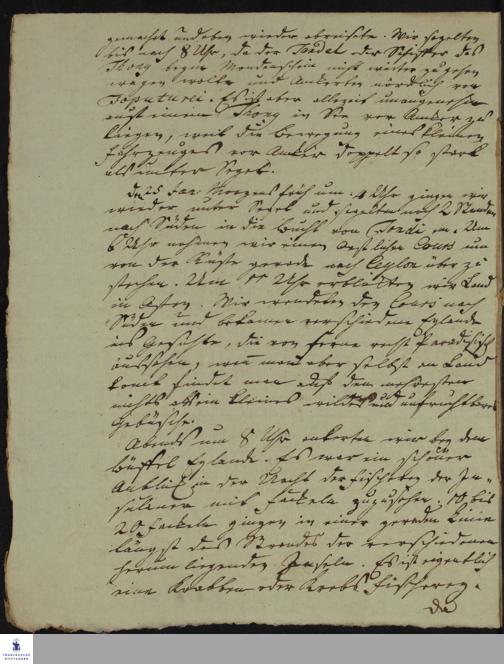 gemacht und eben wieder abreisete. Wir segelten
bis nach 8 Uhr, da der Tandel oder Schiffer des
Thony beym Mondenschein nicht weiter zu gehen
wagen wolte und Ankerten nördlich von
Toputurei. Es ist aber allezeit unangenehm
auf einem Thony in See vor Anker zu
liegen, weil die Bewegung eines kleinen
Fahrzeuges vor Anker doppelt so stark
als unter Segel.
den 25 Jan: Morgens früh um 4 Uhr gingen wir
wieder unter Segel und segelten noch 2 Stunden
nach Süden in die Bucht von Tondi. Um
6 Uhr nahmen wir einen Oestlichen Cours um
von der Küste gerade nach Ceylon über zu
stechen. Um 11 Uhr erblickten wir Land
in Osten. Wir wendeten den Cours nach
Süden und bekamen verschiedene Eylande
ins Gesichte, die von ferne recht Paradisisch
aussehen, wenn man aber selbst an Land
komt findet man auf den mehresten
nichts als ein kleines wildes und unfruchtbares
Gebüsche.
Abends um 8 Uhr ankerten wir bey dem
Büffel Eylande. Es war ein schöner
Anblick in der Nacht der Fischerey der In-
sulaner mit Fackeln zuzusehen. 10 bis
20 Fackeln gingen in einer geraden Linie
längst des Strandes der verschiedenen
herum liegenden Inseln. Es ist eigentlich
eine Krabben oder Krebs Fischerey.
Da
FRANCKESCHE
STIFTUNGEN